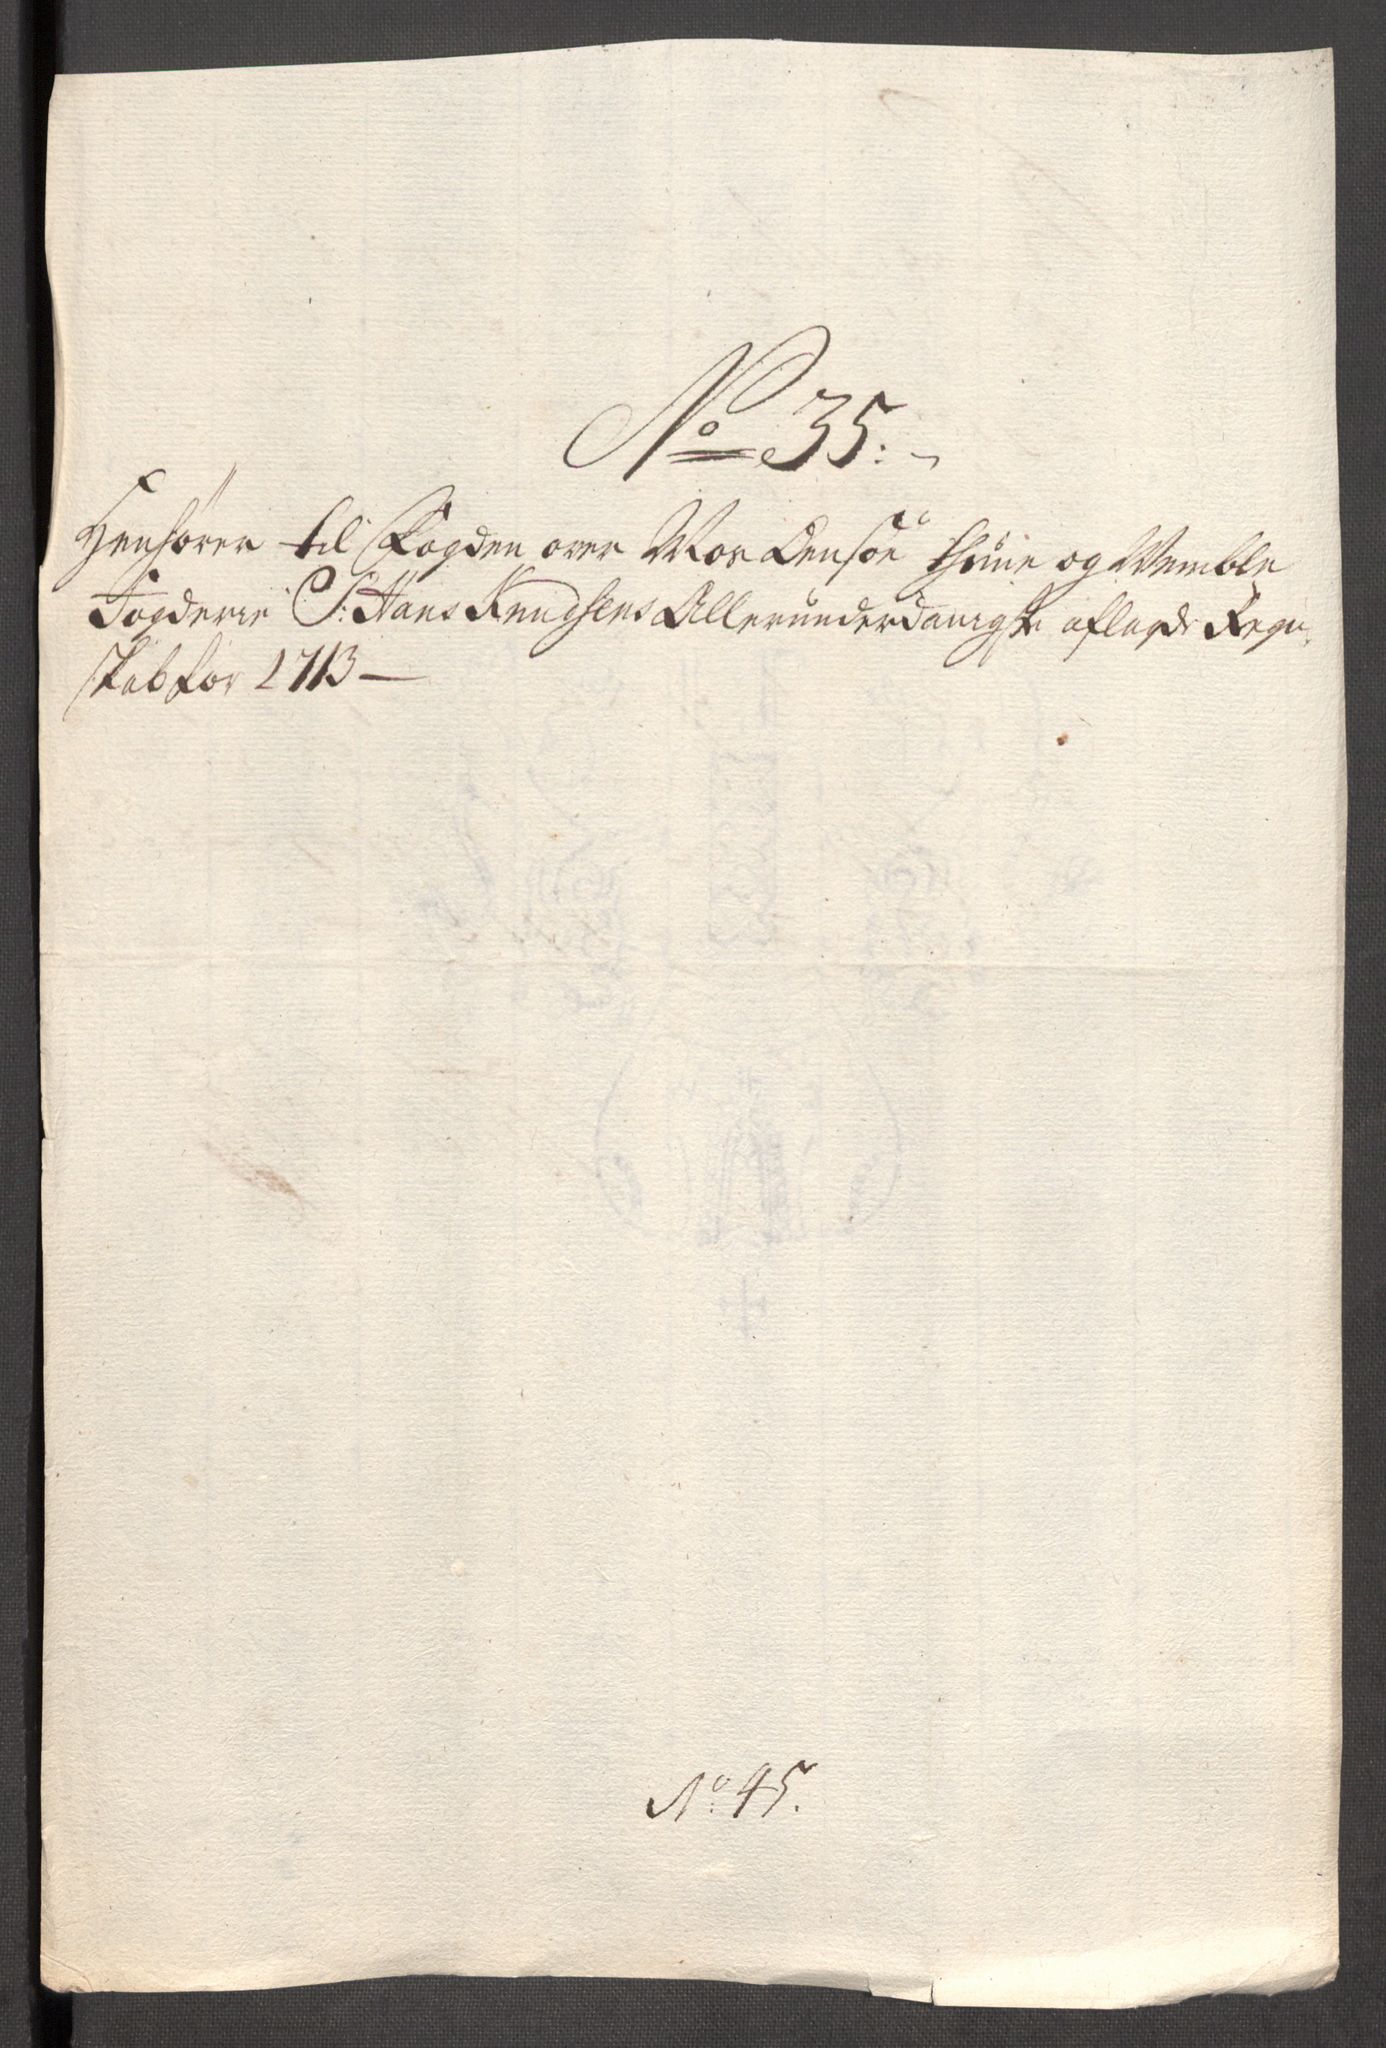 No 35:
Henhører til Fogden over Moss Tensøe Thune og Vemble
Fogderie S: Hans Knudsens Allerunderdanigste aflagde Regn,
skab for 1713
No: 45.